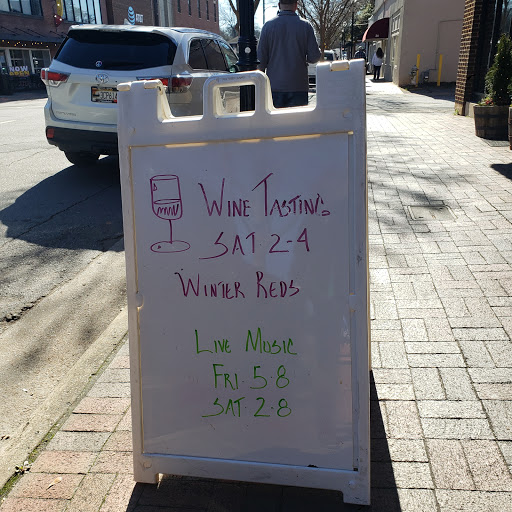 AT&T
WINE TASTING
SAT 2-4
WINTER REDS
LIVE MUSIC
FRI 5-8
SAT 2-8